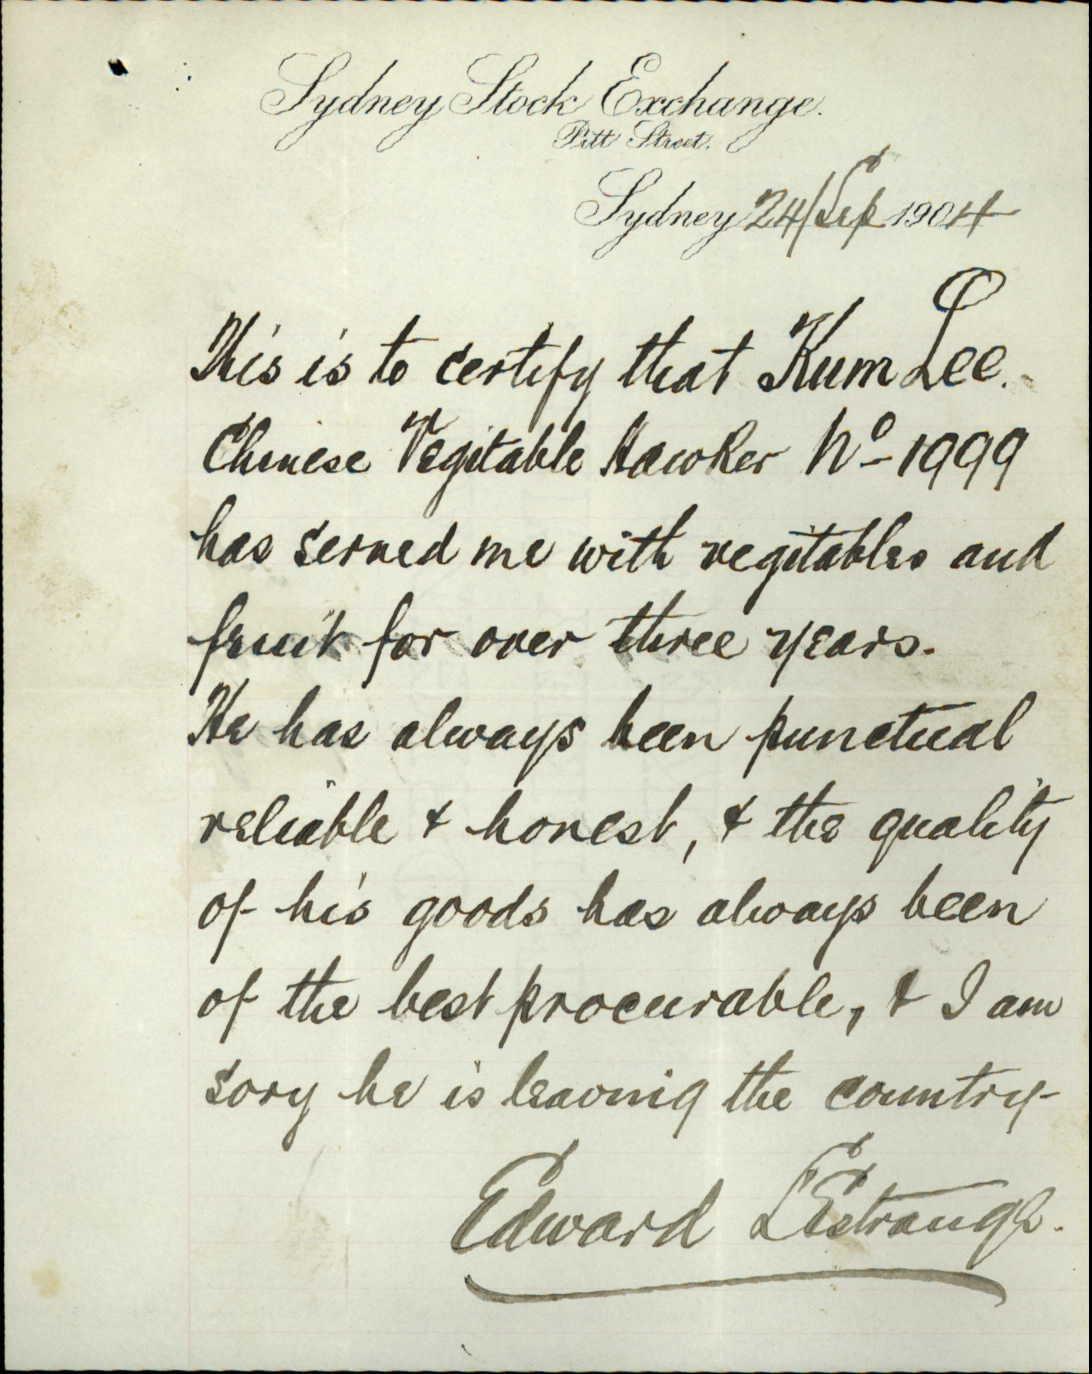 Sydney Stock Exchange.
Pitt Street.
Sydney 24/Sep 1904
This is to certify that Kum Lee.
Chinese Vegitable Hawker No- 1999
has served me with vegitables and
fruit for over three years.
He has always been punctual
reliable & honest, & the quality
of his goods has always been
of the best procurable, & I am
sory he is leaving the country-
Edward L'Estrange.